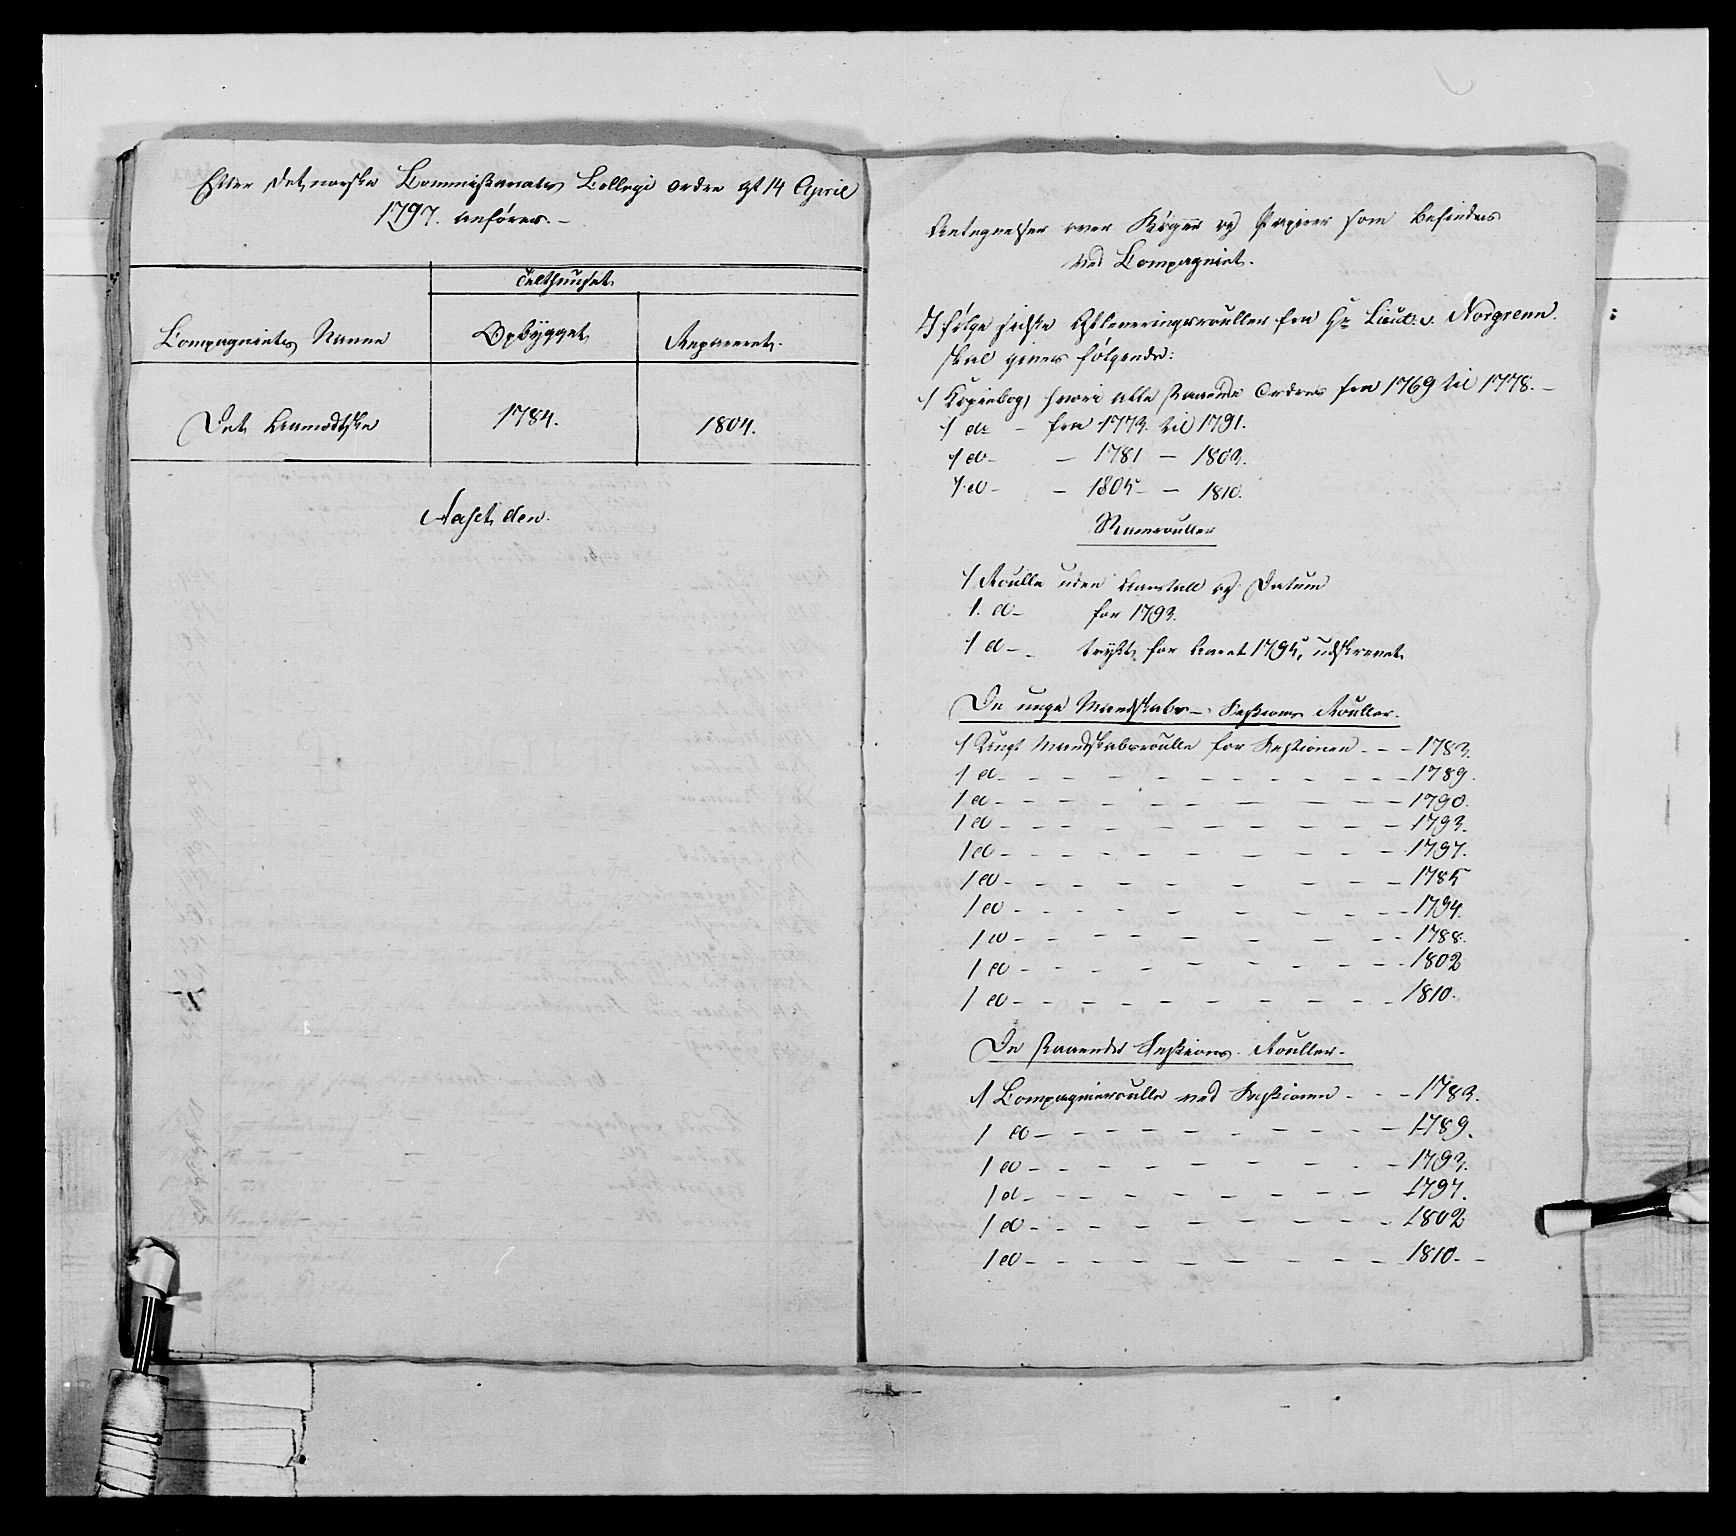 Efter det norske Commissariats Collegi ordre af 14 April
1797. anføres.-
Telthuuset
Compagniets Navne
Opbygget
Repareret.
Det Aamodtske
1784.
1804.
Aaset den.
Antegnelser over Bøger og Papirer som befindes
ved Compagniet.
Ifølge sidste Afleveringsrouller fra Hr Lieut: v. Norgrenn.
skal gives følgende:
1 Kopiebog, hvori alle staaende Ordres fra 1769 til 1778.-
1 do - fra 1773. til 1791.
1 do- - 1781 - 1803.
1 do- - 1805- - 1810.
Stamrouller
1 Roulle uden Aarstall og Datum
1. do- for 1793.
1 do- trykt, for Aaret 1795, udskrevet
De unge Mandskabs- Sessions Rouller.
1 Ungt Mandskabsroulle for Sessionen - - - 1783.
1 do - - - 1789.
1 do - - - 1790.
1 do - - - 1793.
1 do - - - 1797.
1 do - - - 1785
1 do - - - 1794.
1 do - - - 1788.
1 do - - - 1802
1 do - - - 1810.
De staaende Sessions Rouller.
1 Compagnieroulle ved Sessionen - - - 1783.
1 do - - - 1789.
1 do - - - 1793.
1 do - - - 1797.
1 do - - - 1802
1 do - - - 1810. -